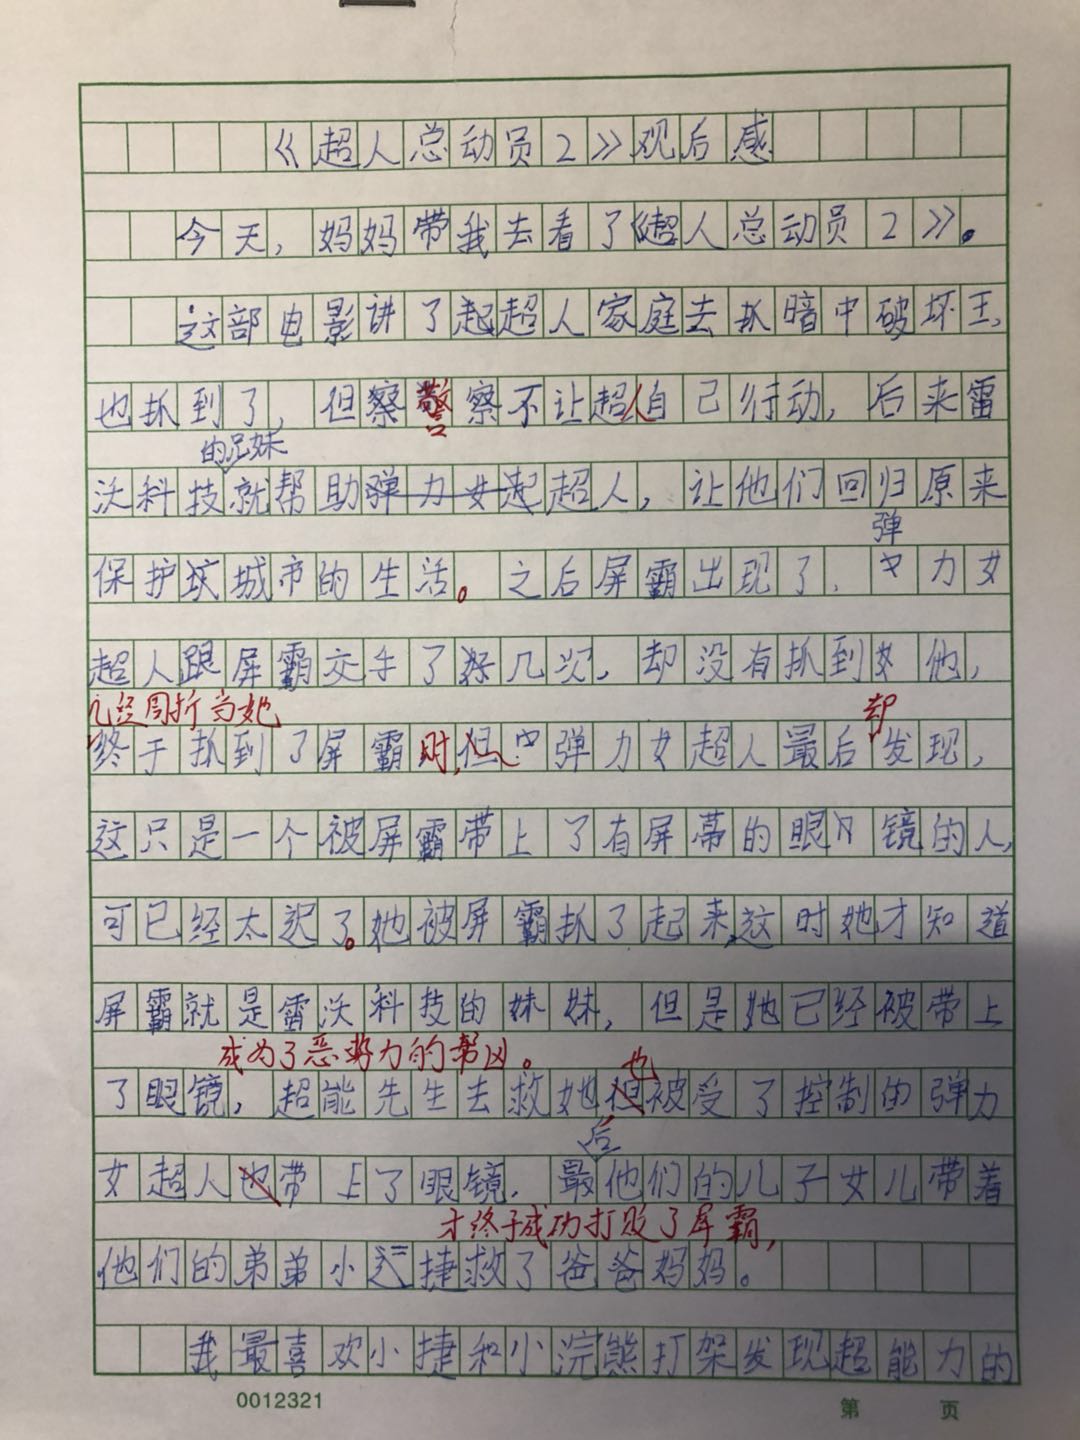 《超人总动员2》观后感
今天，妈妈带我去看了《超人总动员2》。
这部电影讲了起超人家庭去抓暗中破坏王，
也抓到了，但察警察不让超人自己行动，后来雷
的兄妹
沃科技就帮助弹力女起超人，让他们回归原来
弹
保护城市的生活。之后屏霸出现了，力女
超人跟屏霸交手了好几次，却没有抓到他，
几经周折当她 却
终于抓到了屏霸时，但弹力女超人最后发现，
这只是一个被屏霸带上了有屏幕的眼镜的人，
可已经太迟了。她被屏霸抓了起来，这时她才知道
屏霸就是雷沃科技的妹妹，但是她已经被带上
成为了恶势力的帮凶。 也
了眼镜，超能先生去救她但被受了控制的弹力
后
女超人也带上了眼镜．最他们的儿子女儿带着
才终于成功打败了屏霸，
他们的弟弟小捷救了爸爸妈妈。
我最喜欢小捷和小浣熊打架发现超能力的
0012321 第 页